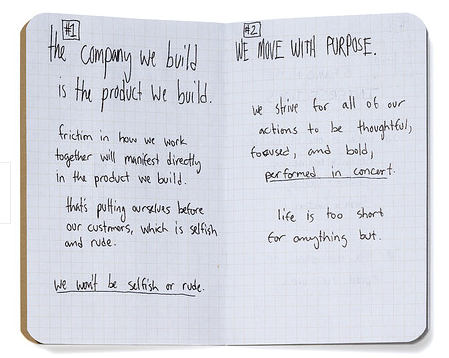 #1
the company we build
is the product we build.
friction in how we work
together will manifest directly
in the product we build.
that's putting ourselves before
our customers, which is selfish
and rude.
we won't be selfish or rude.
#2
WE MOVE WITH PURPOSE.
we strive for all of our
actions to be thoughtful,
focused, and bold,
performed in concert.
life is too short
for anything but.